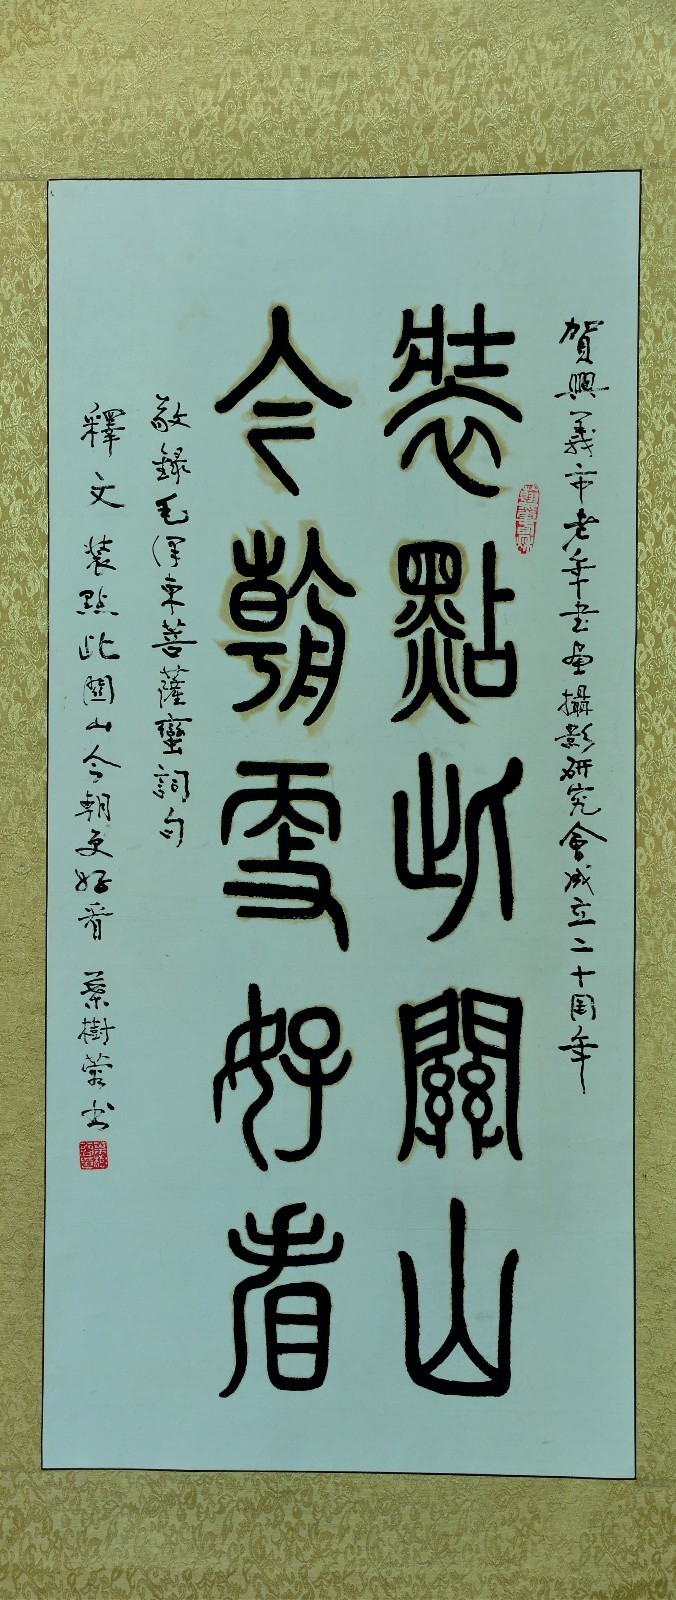 賀興義市老年书画攝影研究會成立二十周年
裝點此關山
今朝更好看
敬錄毛澤東菩薩蠻詞句
釋文 装點此關山今朝更好看 葉樹蓉书